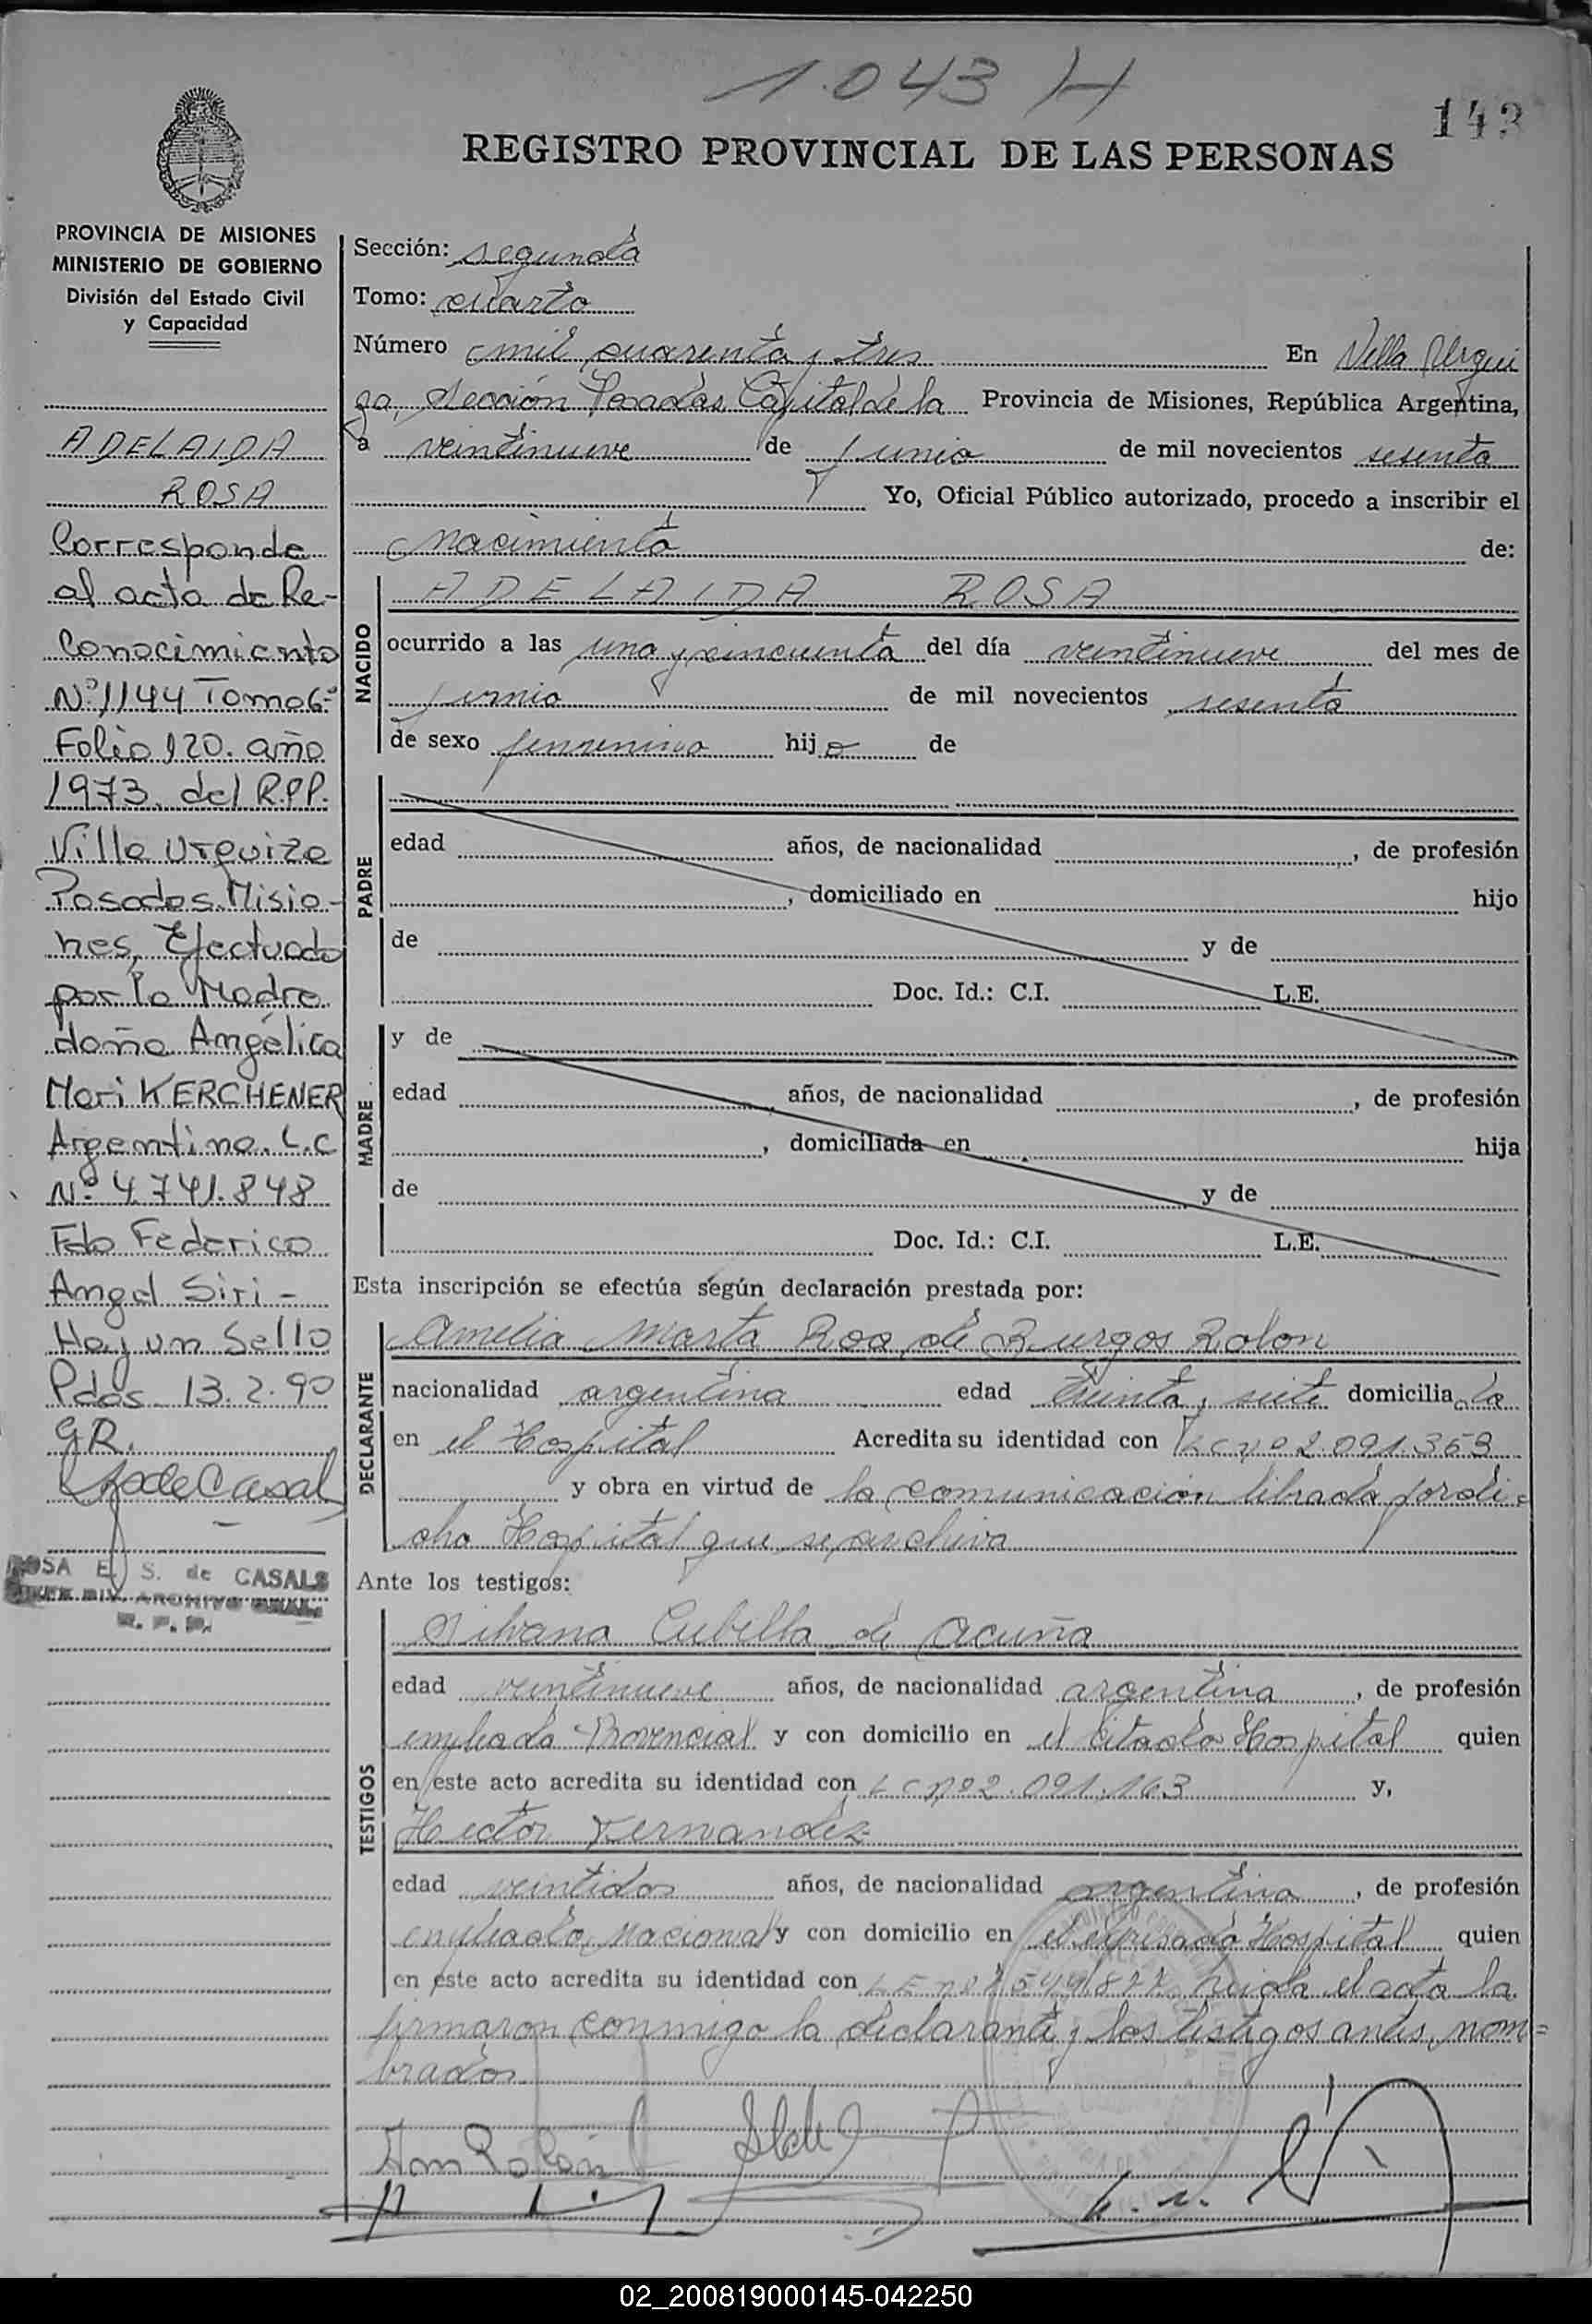 1043 H
143
REGISTRO PROVINCIAL DE LAS PERSONAS
PROVINCIA DE MISIONES
MINISTERIO DE GOBIERNO
División del Estado Civil
y Capacidad
ADELAIDA
ROSA
Corresponde
al acta de Re-
conocimiento
Nº 1144 Tomo 6º
Folio 120. año
1973. del R.P.P.
Villa Urquiza
Posadas Misio-
nes, Efectuado
por la Madre
doña Angélica
Mari KERCHENER
Argentina. L.C
Nº 4.741.848
Fdo Federico
Angel Siri -
Hay un Sello
Pdas. 13.2.90
G.R.
ROSA E. S. de CASALS
Sección: segunda
Tomo: cuarto
Número mil cuarenta y tres En Villa Urqui
za, Sección Posadas Capital de la Provincia de Misiones, República Argentina,
a veintinueve de junio de mil novecientos sesenta
Yo, Oficial Público autorizado, procedo a inscribir el
nacimiento de:
NACIDO
ADELAIDA ROSA
ocurrido a las una y cincuenta del día veintinueve del mes de
junio de mil novecientos sesenta
de sexo femenino hija de
PADRE
edad años, de nacionalidad , de profesión
, domiciliado en hijo
de y de
Doc. Id.: C.I. L.E.
MADRE
y de
edad años, de nacionalidad , de profesión
, domiciliada en hija
de y de
Doc. Id.: C.I. L.E.
Esta inscripción se efectúa según declaración prestada por:
DECLARANTE
Amelia Marta Roa de Burgos Rolon
nacionalidad argentina edad treinta y siete domiciliada
en el Hospital Acredita su identidad con L C nº 2.091.353
y obra en virtud de la comunicación librada por di=
cho Hospital que se archiva
Ante los testigos:
TESTIGOS
Silvana Cubilla de Acuña
edad veintinueve años, de nacionalidad argentina , de profesión
empleada Provincial y con domicilio en el citado Hospital quien
en este acto acredita su identidad con L C nº 2.091.163 y,
Hector Fernandez
edad veintidos años, de nacionalidad argentina , de profesión
empleado Nacional y con domicilio en el expresado Hospital quien
en este acto acredita su identidad con L E nº 7.549.877 leida el acta la
firmaron conmigo la declarante y los testigos antes nom=
brados
02_200819000145-042250